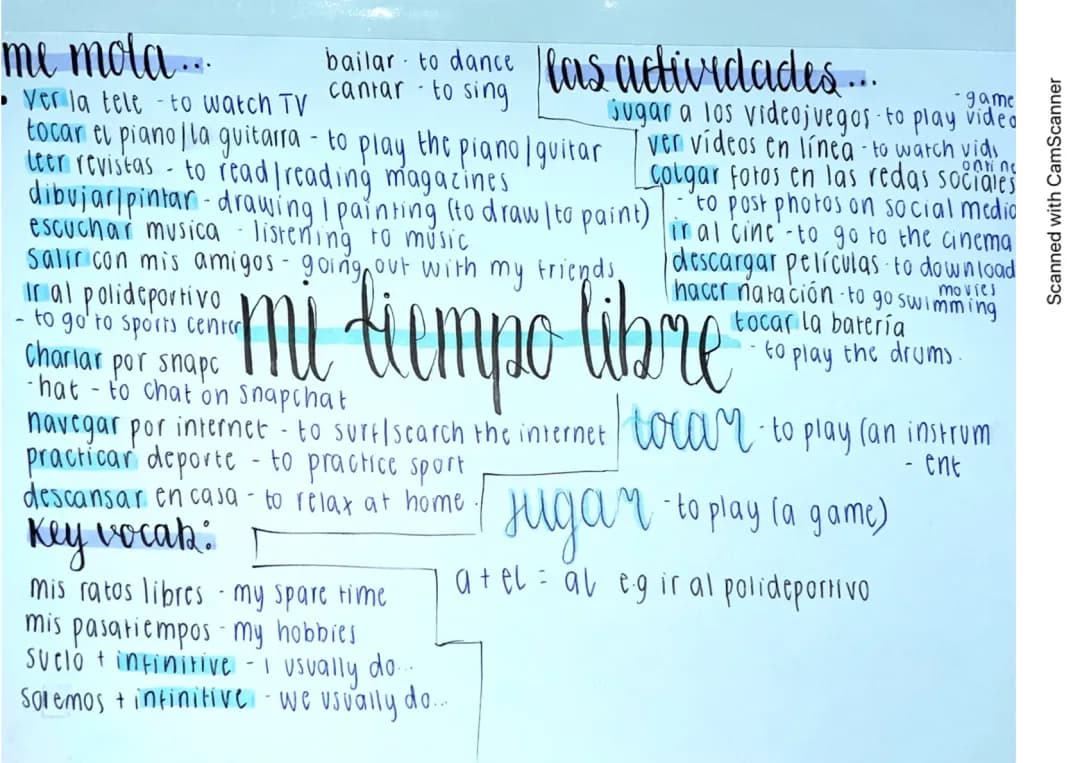 me mola...
bailar - to dance
cantar - to sing
ver la tele - to watch TV
tocar el piano/la guitarra - to play the piano/guitar
leer revistas - to read/reading magazines
dibujar/pintar - drawing/painting (to draw/to paint)
escuchar musica - listening to music
salir con mis amigos - going out with my friends
Ir al polideportivo
- to go to sports center
charlar por snapc
-hat - to chat on snapchat
navegar por internet - to surf/search the internet
practicar deporte - to practice sport
descansar en casa - to relax at home
las actividades...
jugar a los videojuegos - to play video
- game
ver vídeos en línea - to watch vids
online
colgar fotos en las redas sociales
- to post photos on social media
ir al cine - to go to the cinema
descargar películas - to download
movies
hacer natación - to go swimming
tocar la batería
- to play the drums.
mi tiempo libre
tocar - to play (an instrum
- ent
jugar - to play (a game)
a + el = al e.g ir al polideportivo
Key vocab:
mis ratos libres - my spare time
mis pasatiempos - my hobbies
suelo + infinitive - I usually do...
solemos + infinitive - we usually do...
Scanned with CamScanner